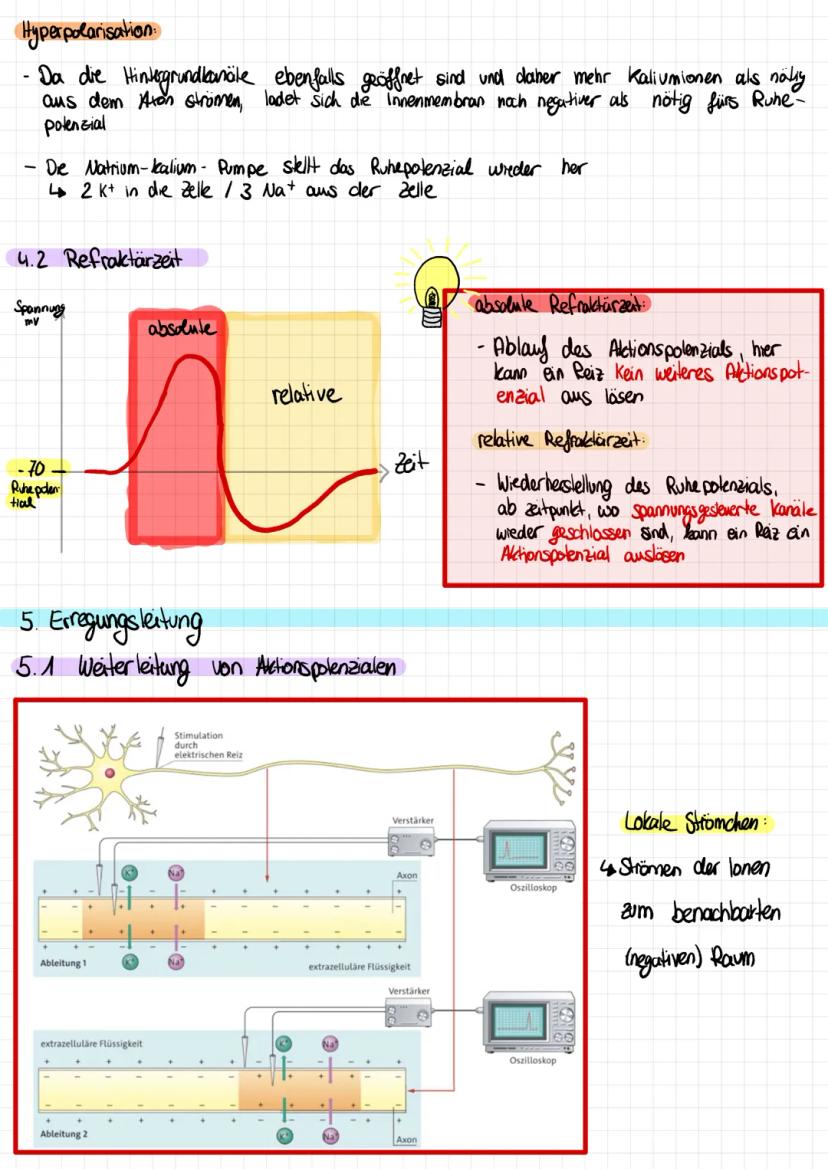 Hyperpolarisation:
- Da die Hintergrundkanäle ebenfalls geöffnet sind und daher mehr Kaliumionen als nötig
aus dem Axon strömen, ladet sich die Innenmembran noch negativer als nötig fürs Ruhe-
potenzial
- Die Natrium-Kalium-Pumpe stellt das Ruhepotenzial wieder her
↳ 2 K+ in die Zelle / 3 Na+ aus der Zelle
4.2 Refraktärzeit
Spannung
mV
absolute
relative
-70
Ruhepoten-
tial
Zeit
absolute Refraktärzeit:
- Ablauf des Aktionspotenzials, hier
kann ein Reiz kein weiteres Aktionspot-
enzial aus lösen
relative Refraktärzeit:
- Wiederherstellung des Ruhepotenzials,
ab Zeitpunkt, wo spannungsgesteuerte Kanäle
wieder geschlossen sind, kann ein Reiz ein
Aktionspotenzial auslösen
5. Erregungsleitung
5.1 Weiterleitung von Aktionspotenzialen
Stimulation
durch
elektrischen Reiz
Verstärker
Oszilloskop
K+ Na+
Axon
K+ Na+
Ableitung 1
extrazelluläre Flüssigkeit
Verstärker
Oszilloskop
extrazelluläre Flüssigkeit
K+ Na+
K+ Na+
Ableitung 2
Axon
Lokale Strömchen:
↳ Strömen der Ionen
zum benachbarten
(negativen) Raum